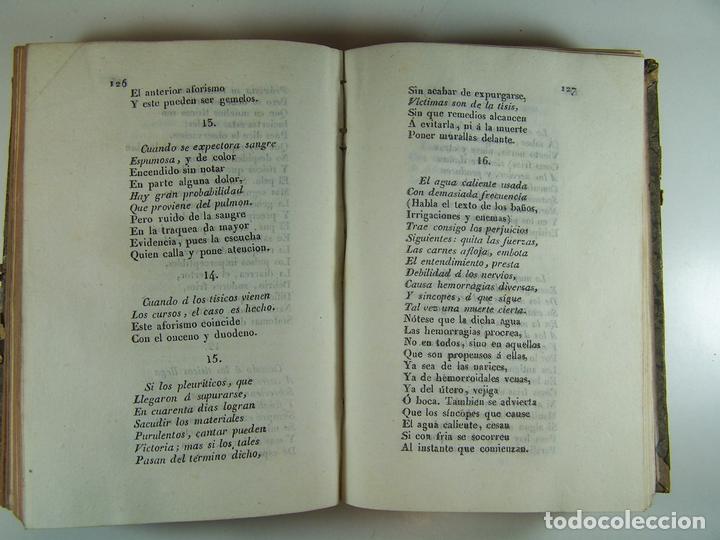 126
El anterior aforismo
Y este pueden ser gemelos.
13.
Cuando se expectora sangre
Espumosa, y de color
Encendido sin notar
En parte alguna dolor,
Hay gran probabilidad
Que proviene del pulmon.
Pero ruido de la sangre
En la traquea da mayor
Evidencia, pues la escucha
Quien calla y pone atencion.
14.
Cuando á los tísicos vienen
Los cursos, el caso es hecho.
Este aforismo coincide
Con el onceno y duodeno.
15.
Si los pleuríticos, que
Llegaron á supurarse,
En cuarenta dias logran
Sacudir los materiales
Purulentos, cantar pueden
Victoria; mas si los tales
Pasan del término dicho,
127
Sin acabar de expurgarse,
Víctimas son de la tisis,
Sin que remedios alcancen
Á evitarla, ni á la muerte
Poner murallas delante.
16.
El agua caliente usada
Con demasiada frecuencia
(Habla el texto de los baños,
Irrigaciones y enemas)
Trae consigo los perjuicios
Siguientes: quita las fuerzas,
Las carnes afloja, embota
El entendimiento, presta
Debilidad á los nervios,
Causa hemorragias diversas,
Y síncopes, á que sigue
Tal vez una muerte cierta.
Nótese que la dicha agua
Las hemorragias procrea,
No en todos, sino en aquellos
Que son propensos á ellas,
Ya sea de las narices,
Ya de hemorroidales venas,
Ya del útero, vejiga
Ó boca. Tambien se advierta
Que los síncopes que cause
El agua caliente, cesan
Si con fria se socorren
Al instante que comienzan.
todocoleccion